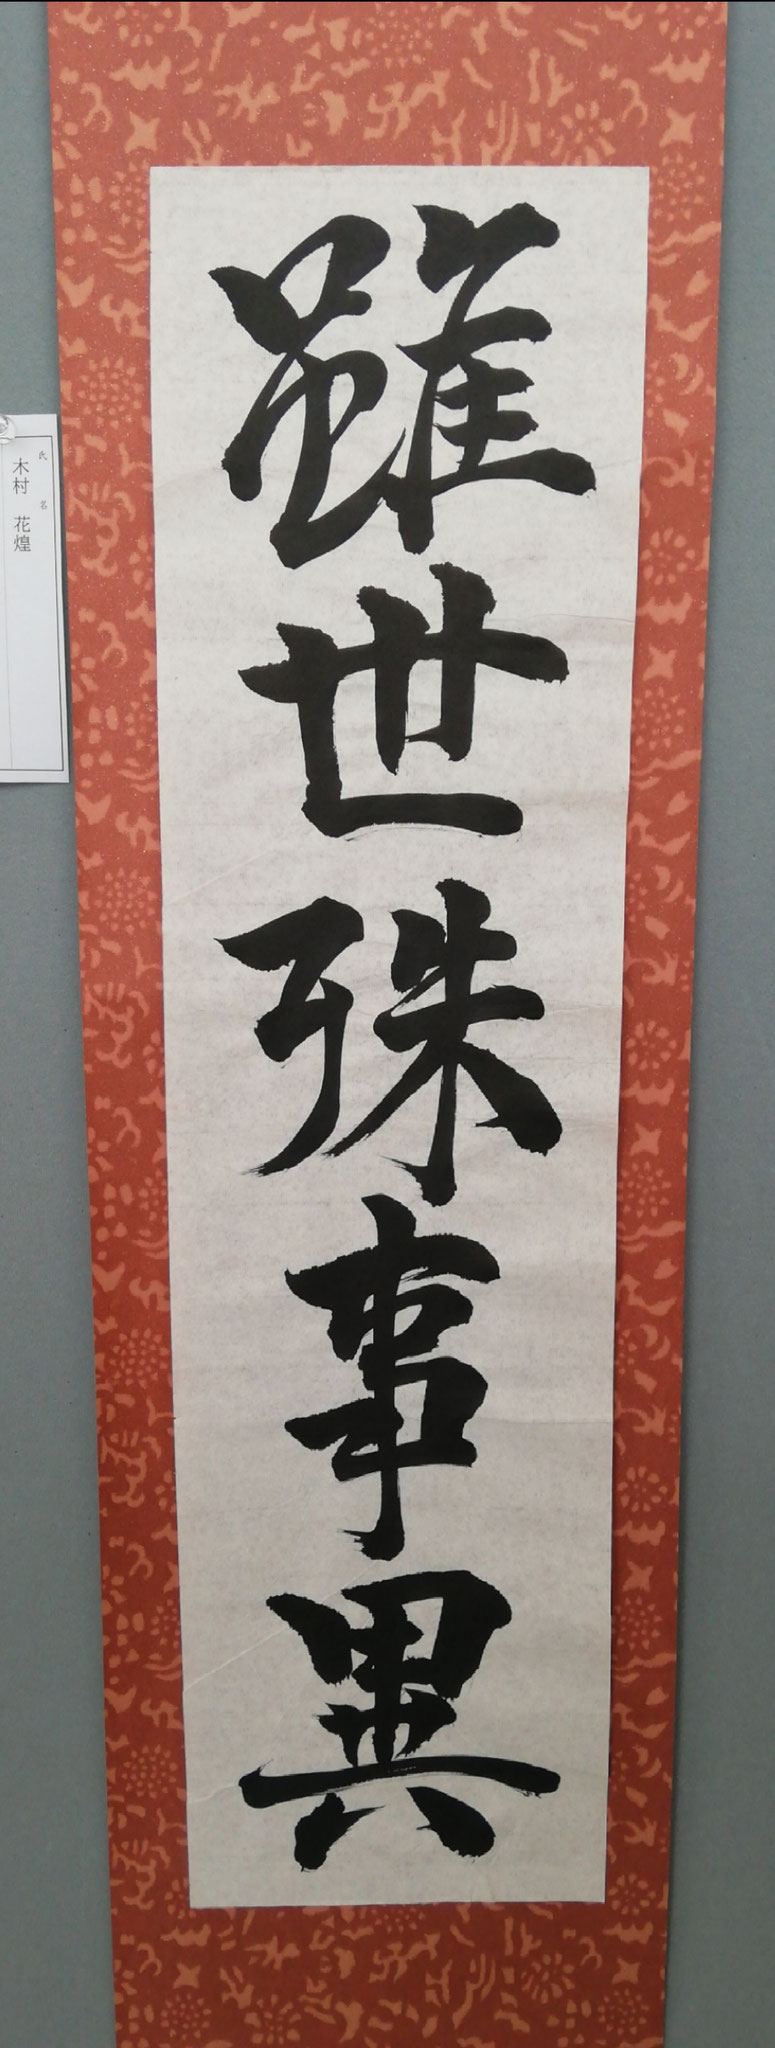 雖世殊事異
氏名
木村 花煌